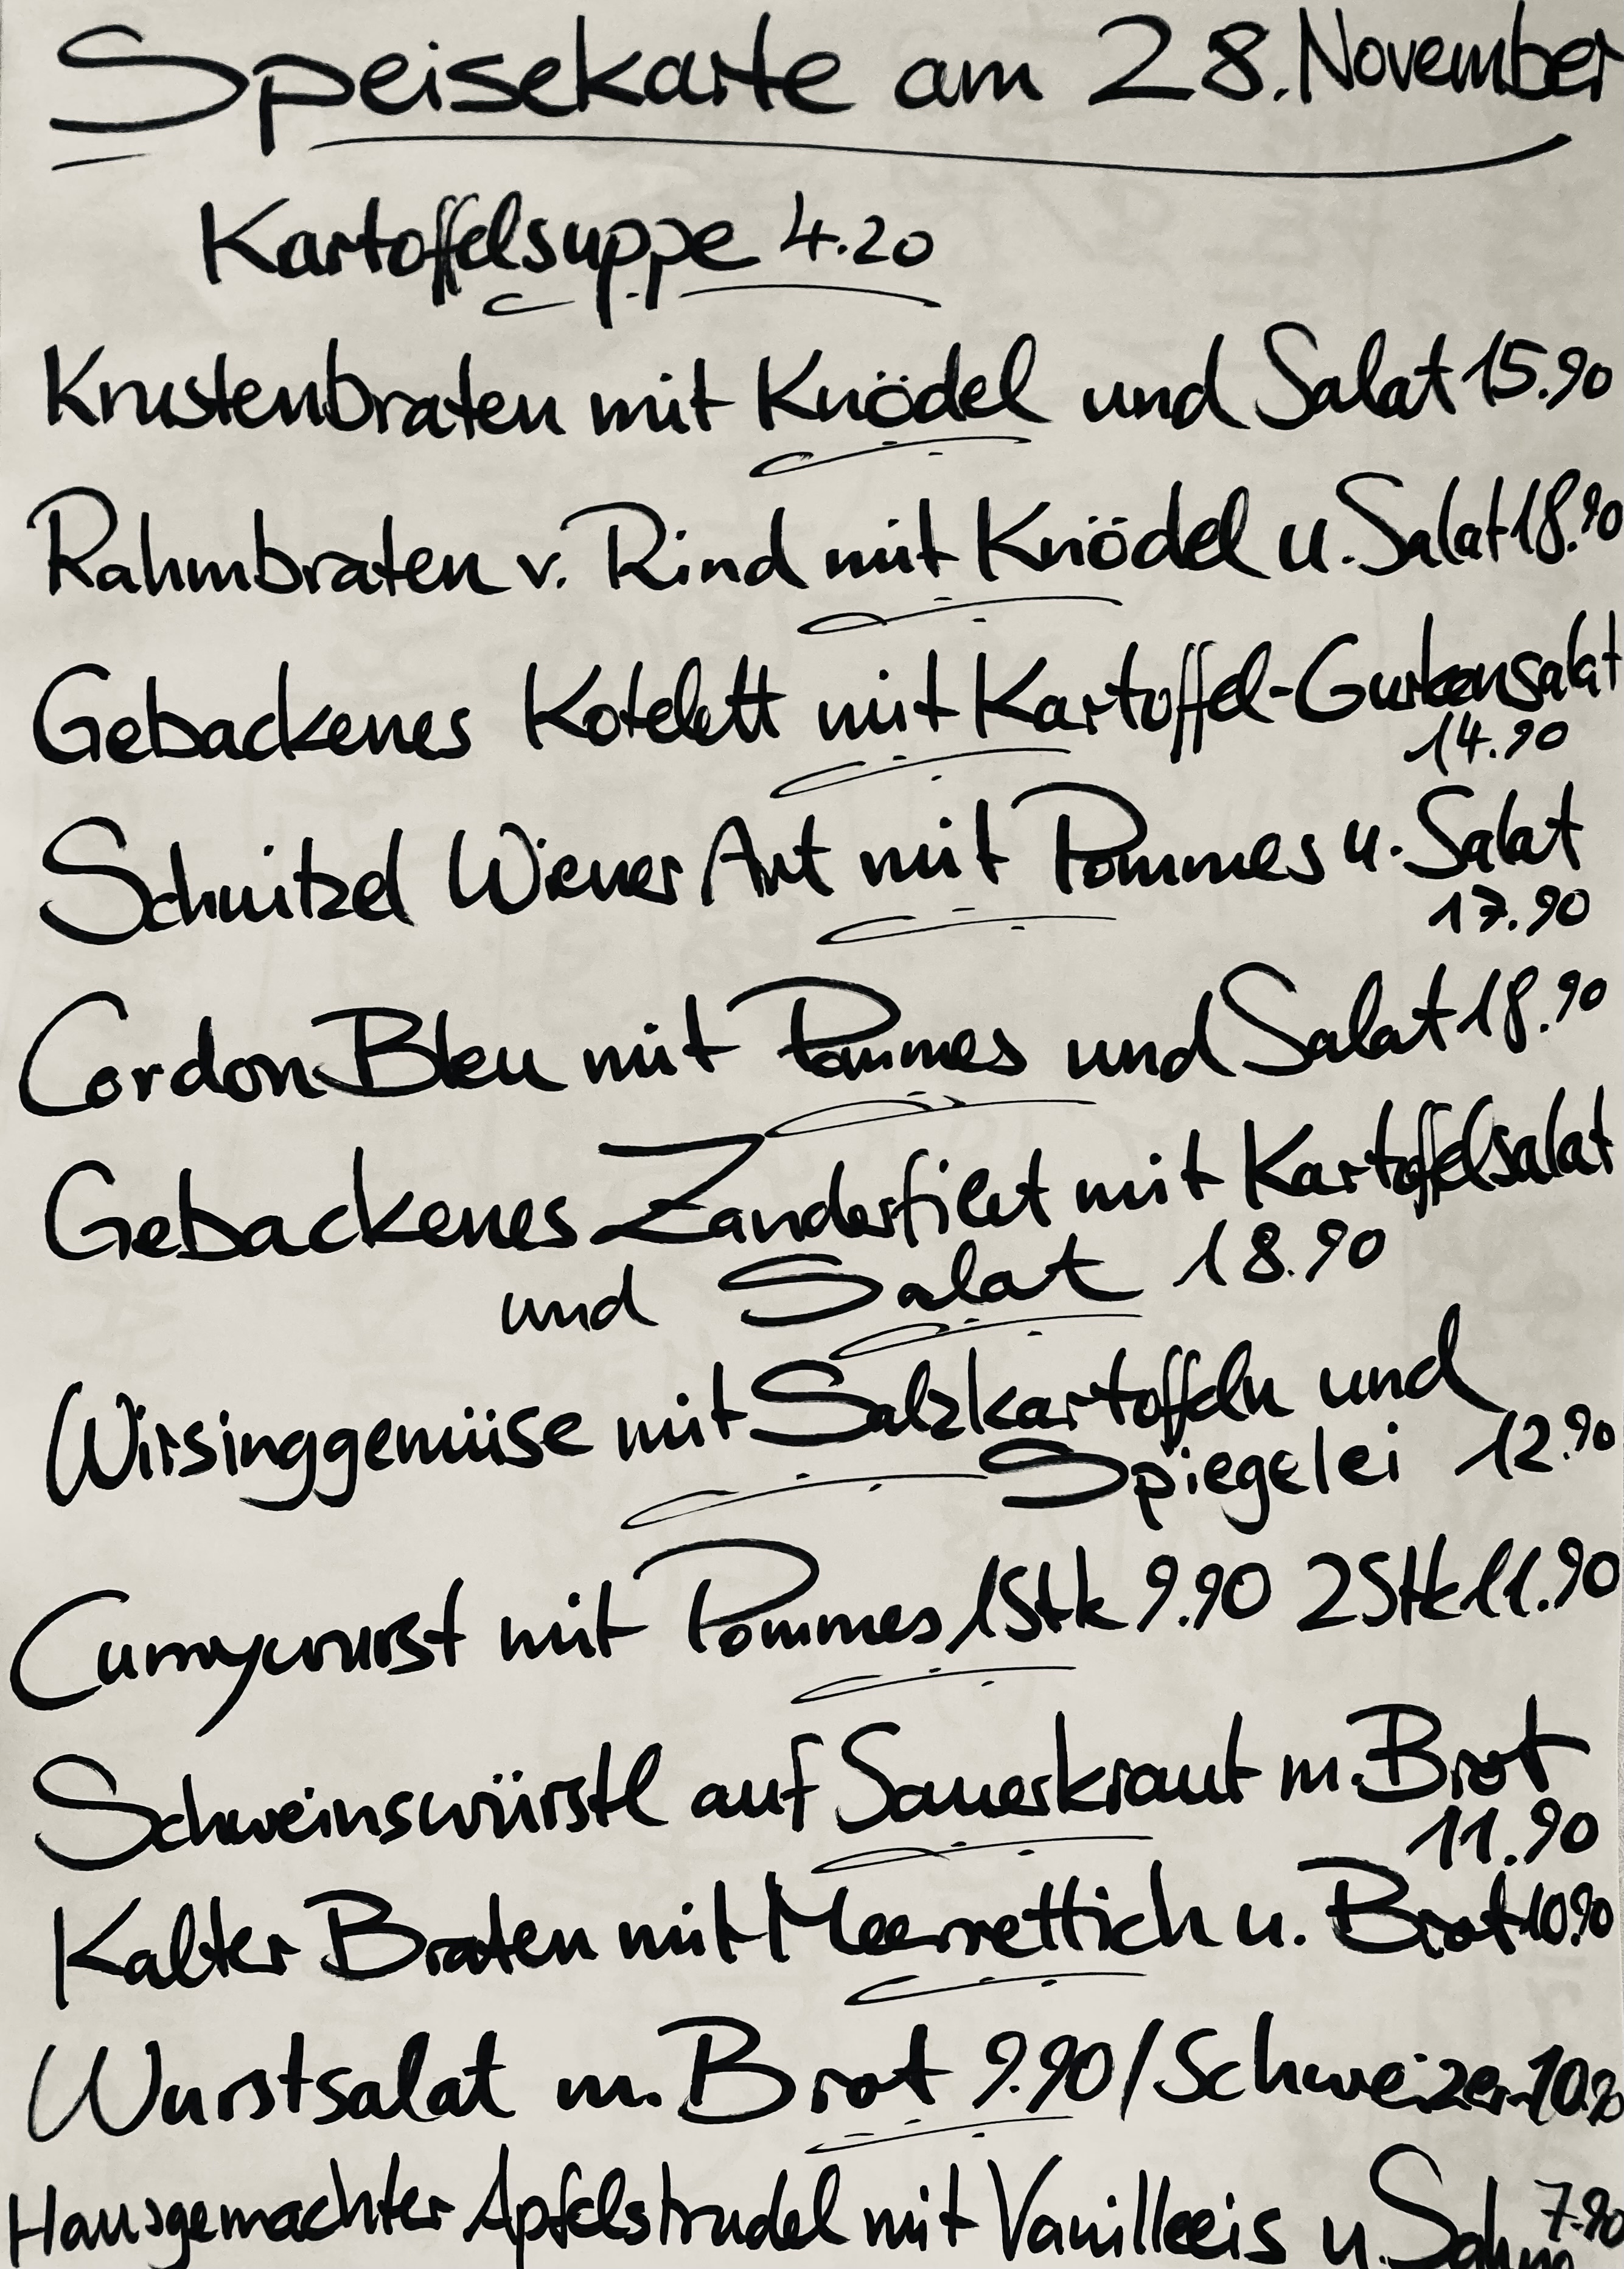 Speisekarte am 28. November
Kartoffelsuppe 4.20
Krustenbraten mit Knödel und Salat 15.90
Rahmbraten v. Rind mit Knödel u. Salat 18.90
Gebackenes Kotelett mit Kartoffel-Gurkensalat
14.90
Schnitzel Wiener Art mit Pommes u. Salat
17.90
Cordon Bleu mit Pommes und Salat 18.90
Gebackenes Zanderfilet mit Kartoffelsalat
und Salat 18.90
Wirsinggemüse mit Salzkartoffeln und
Spiegelei 12.90
Currywurst mit Pommes 1Stk 9.90 2Stk 11.90
Schweinswürstl auf Sauerkraut m. Brot
11.90
Kalter Braten mit Meerrettich u. Brot 10.90
Wurstsalat m. Brot 9.90 / Schweizer 10.90
Hausgemachter Apfelstrudel mit Vanilleeis u. Sahne 7.90